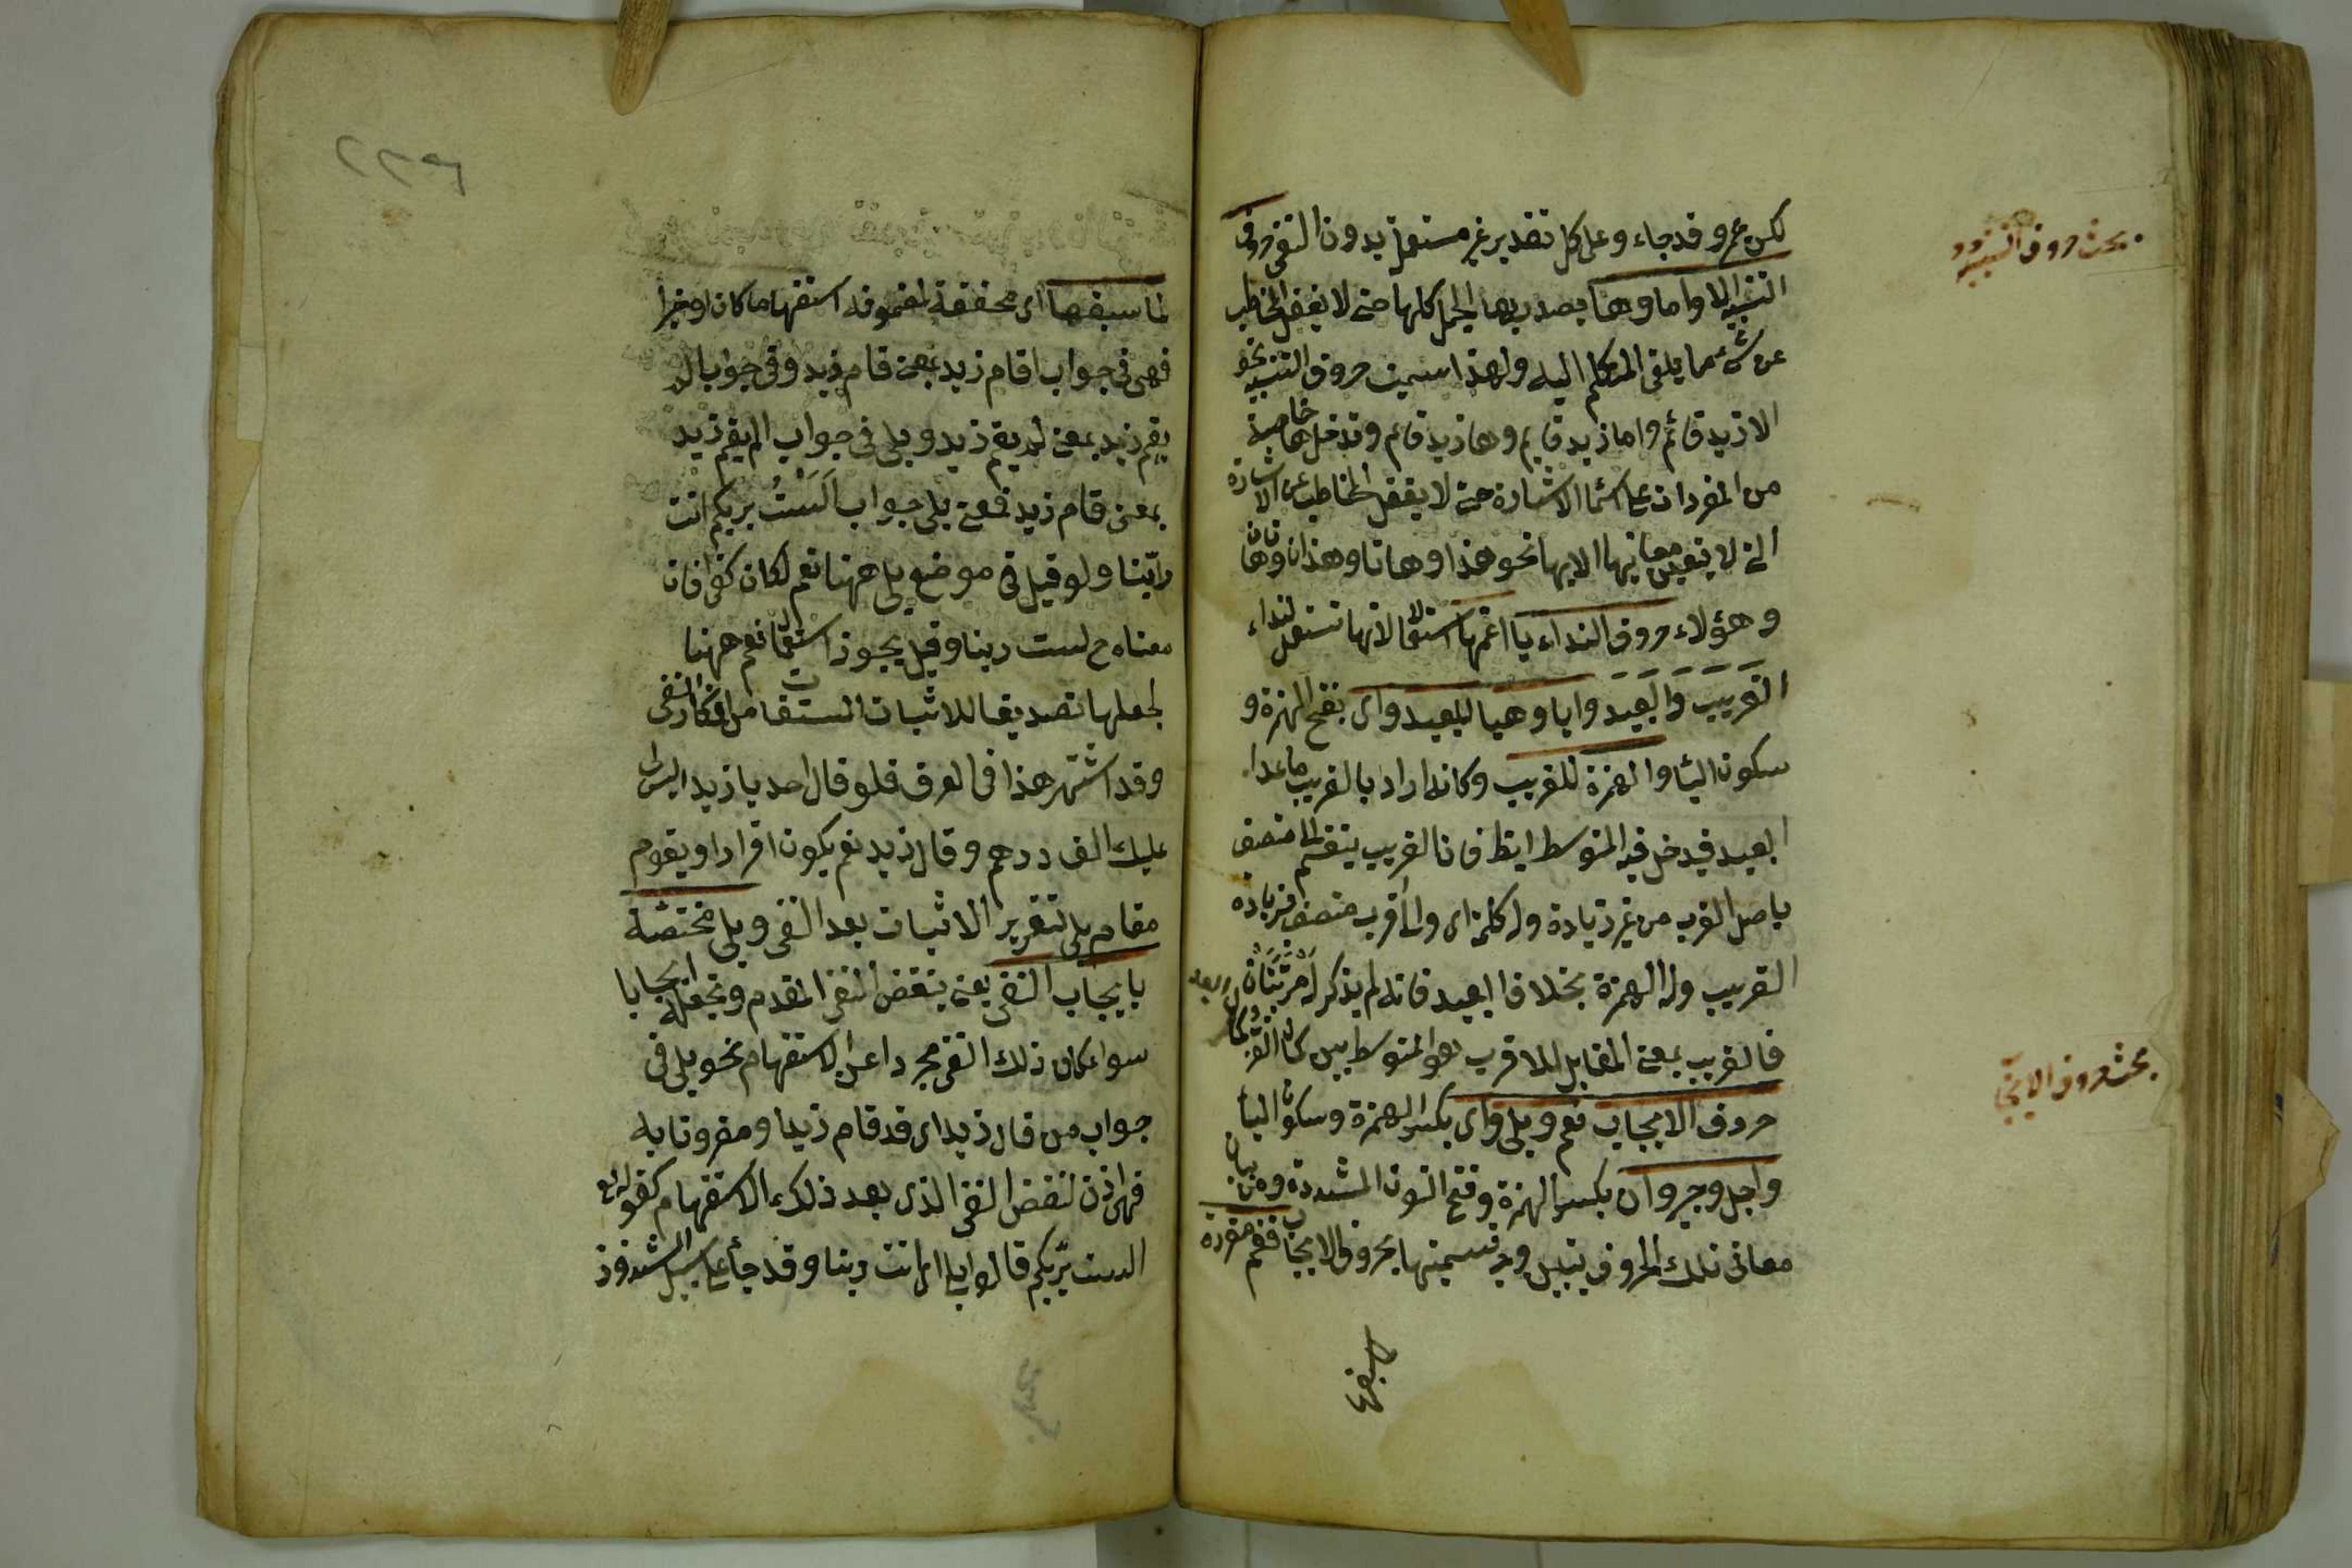 لكن عمرو قد جاء وعلى كل تقدير غير مستعمل بدون النفي حروف
التنبيه الا واما وها يصدر بها الجمل كلها حتى لا يغفل المخاطب
عن شئ مما يلقى المتكلم اليه ولهذا سميت حروف التنبيه نحو
الا زيد قائم واما زيد قايم وها زيد قائم وتدخل ها خاصة
من المفردات على اسماء الاشارة حتى لا يغفل المخاطب عن الاشارة
التي لا يتعين معانيها الا بها نحو هذا وهاتا وهذان وهاتان
وهؤلاء حروف النداء يا اعمها استعمالا لانها تستعمل لنداء
القريب والبعيد وايا وهيا للبعيد واى بفتح الهمزة و
سكون الياء والهمزة للقريب وكانه اراد بالقريب ما عدا
البعيد فيدخل فيه المتوسط ايضا فان القريب ينقسم الى متصف
باصل القرب من غير زيادة وله كلمة اى والى اقرب متصف بزيادة
القريب وله الهمزة بخلاف البعيد فانه لم يذكر له مرتبتان
فالقريب بمعنى المقابل للاقرب هو المتوسط بين كمال القرب
حروف الايجاب نعم وبلى واى بكسر الهمزة وسكون الياء
واجل وجير وان بكسر الهمزة وفتح النون المشددة ومن بيان
معانى تلك الحروف يتبين وجه تسميتها بحروف الايجاب فنعم مقررة
لما سبقها
بحث حروف التنبيه
بحث حروف الايجاب
٢٢٦
لما سبقها اى محققة لمضمونه استفهاما كان او خبرا
فهى فى جواب اقام زيد بمعنى قام زيد وفى جواب الم
يقم زيد بمعنى لم يقم زيد وبلى فى جواب الم يقم زيد
بمعنى قام زيد فمعنى بلى جواب الست بربكم انت
ربنا ولو قيل فى موضع بلى ههنا نعم لكان كفرا فان
معناه ح لست ربنا وقيل يجوز استعمال نعم ههنا
لجعلها تصديقا للاثبات المستفاد من انكار النفى
وقد اشتهر هذا فى العرف فلو قال احد يا زيد اليس لى
عليك الف درهم وقال زيد نعم يكون اقرارا ويقوم
مقام بلى لتقرير الاثبات بعد النفى وبلى مختصة
بايجاب النفى يعنى ينقض النفى المقدم وتجعله ايجابا
سواء كان ذلك النفى مجردا عن الاستفهام نحو بلى فى
جواب من قال زيد اى قد قام زيد او مقرونا به
فهى اذن لنقض النفى الذى بعد ذلك الاستفهام كقوله تع
الست بربكم قالوا بلى اى انت ربنا وقد جاء على سبيل الشذوذ